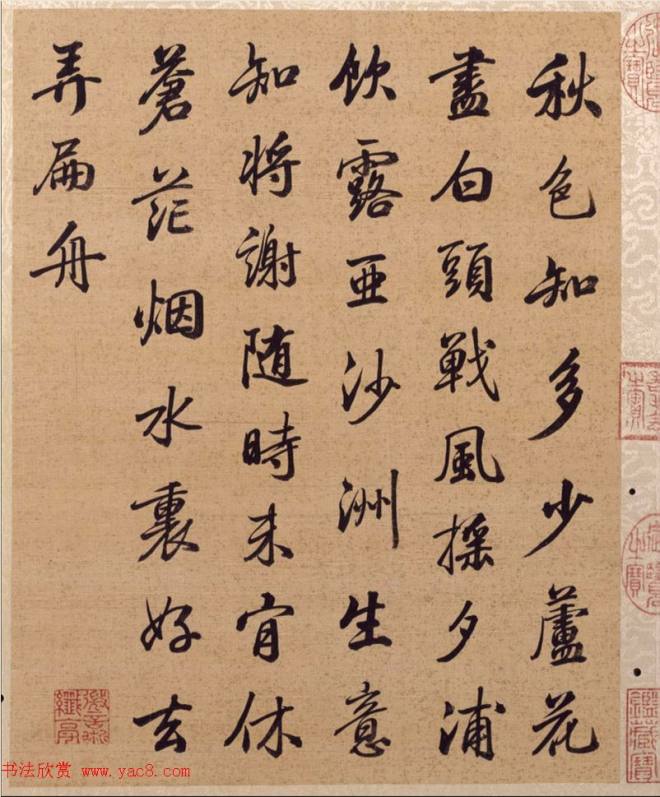 秋色知多少蘆花
盡白頭戰風揺夕浦
飲露亞沙洲生意
知將謝随時未肎休
蒼茫烟水裏好去
弄扁舟
鑑藏寶
书法欣赏 www.yac8.com